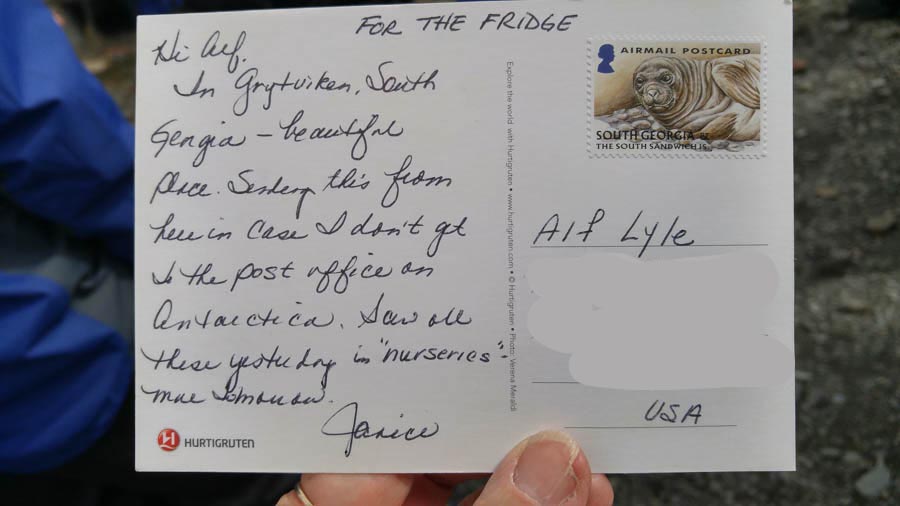 FOR THE FRIDGE
Hi Alf.
In Grytviken, South
Georgia – beautiful
place. Sending this from
here in case I don't get
to the post office on
Antarctica. Saw all
these yesterday in "nurseries" -
more tomorrow.
Janice
HURTIGRUTEN
Explore the world with Hurtigruten • www.hurtigruten.com • © Hurtigruten • Photo: Verena Meraldi
AIRMAIL POSTCARD
SOUTH GEORGIA &
THE SOUTH SANDWICH IS.
Alf Lyle
USA